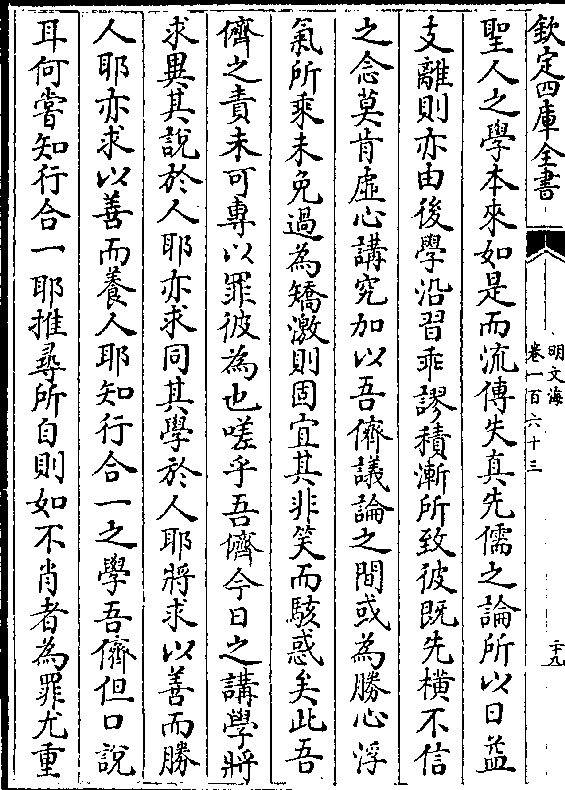 欽定四庫全書
明文海
卷一百六十三
十九
聖人之學本來如是而流傳失真先儒之論所以日益
支離則亦由後學沿習乖謬積漸所致彼既先橫不信
之念莫肯虛心講究加以吾儕議論之間或為勝心浮
氣所乘未免過為矯激則固宜其非笑而駭惑矣此吾
儕之責未可專以罪彼為也嗟乎吾儕今日之講學將
求異其說於人耶亦求同其學於人耶將求以善而勝
人耶亦求以善而養人耶知行合一之學吾儕但口說
耳何嘗知行合一耶推尋所自則如不肖者為罪尤重